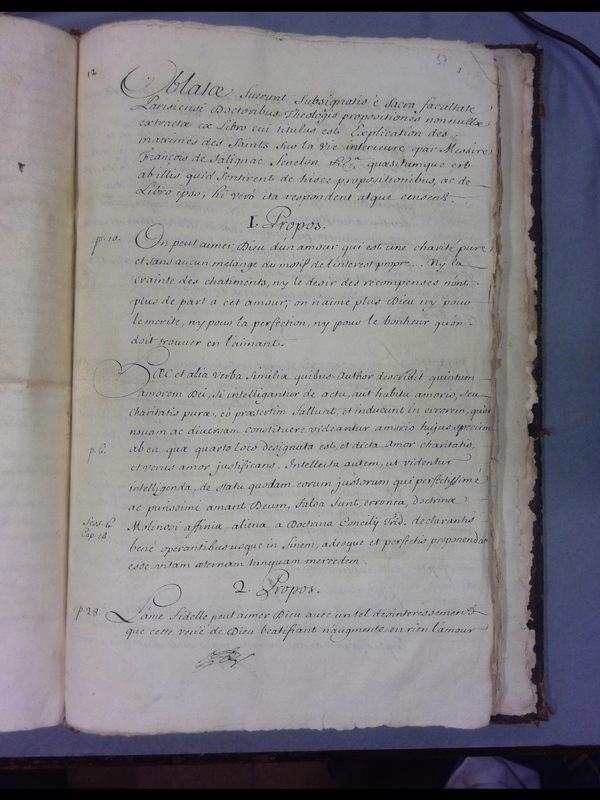 12
57
1
Oblatæ fuerunt Subsignatis è Sacra facultate
Parisiensi Doctoribus Theologis propositiones nonnullæ
extractæ ex Libro cui titulus est Explication des
maximes des Saints Sus la Vie interieure par Messire
François de Salignac fenelon &c.ª quæsitumque est
ab illis quid Sentirent de hisce propositionibus, ac de
Libro ipso, hi vero ita respondent atque censent.
1. Propos.
p. 10. On peut aimer Dieu d'un amour qui est une charité pure
et sans aucun melange du motif de l'interest propre... Ny la
crainte des chatiments, ny le desir des recompenses n'ont
plus de part a cet amour; on n'aime plus Dieu ny pour
le merite, ny pour la perfection, ny pour le bonheur qu'on
doit trouver en l'aimant.
Hæc et alia verba Similia quibus Author describit quintum
amorem Dei, si intelligantur de actu, aut habitu amoris, seu
charitatis puræ, eò præsertim fallunt, et inducunt in errorem, quod
nouam ac diuersam constituere videantur amoris hujus speciem
p. 6. ab ea quæ quarto loco designata est, et dicta Amor charitatis,
et verus amor justificans. Intellecta autem, ut videntur
intelligenda, de statu quodam eorum justorum qui perfectissimè
ac purissimè amant Deum, falsa sunt, erronea, Doctrinæ
Sess. 6. Molinosi affinia, aliena a Doctrina Concilij Trid. declarantis
Cap. 16. benè operantibus usque in finem, adeoque et perfectis proponendam
esse vitam æternam tanquam mercedem.
2. Propos.
p. 28. L'ame fidelle peut aimer Dieu avec un tel desinteressement
que cette veuë de Dieu beatifiant n'augmente en rien l'amour